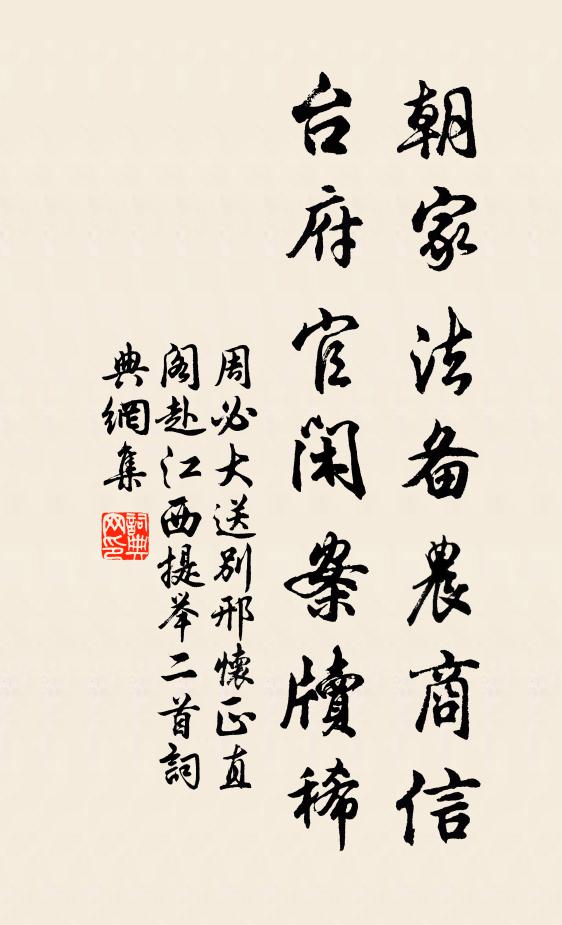 朝家法备農商信
台府官閑案牘稀
周必大送别邢懷正直
阁赴江西提举二首詞
典網集
詞典
网印